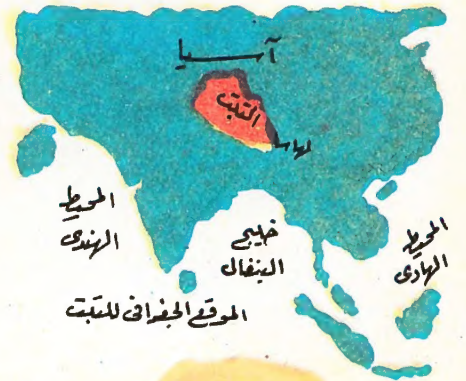 آسيا
التبت
لهاسا
المحيط
الهندى
خليج
البنغال
المحيط
الهادى
الموقع الجغرافى للتبت